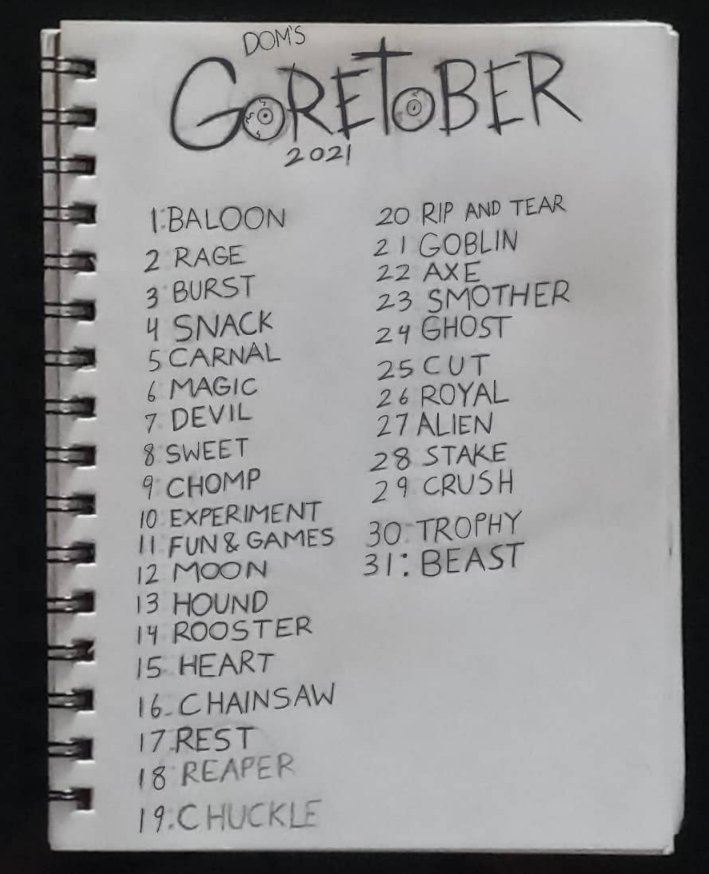 DOM'S
GORETOBER
2021
1:BALOON
2 RAGE
3 BURST
4 SNACK
5 CARNAL
6 MAGIC
7 DEVIL
8 SWEET
9 CHOMP
10 EXPERIMENT
11 FUN & GAMES
12 MOON
13 HOUND
14 ROOSTER
15 HEART
16 CHAINSAW
17 REST
18 REAPER
19. CHUCKLE
20 RIP AND TEAR
21 GOBLIN
22 AXE
23 SMOTHER
24 GHOST
25 CUT
26 ROYAL
27 ALIEN
28 STAKE
29 CRUSH
30 TROPHY
31: BEAST